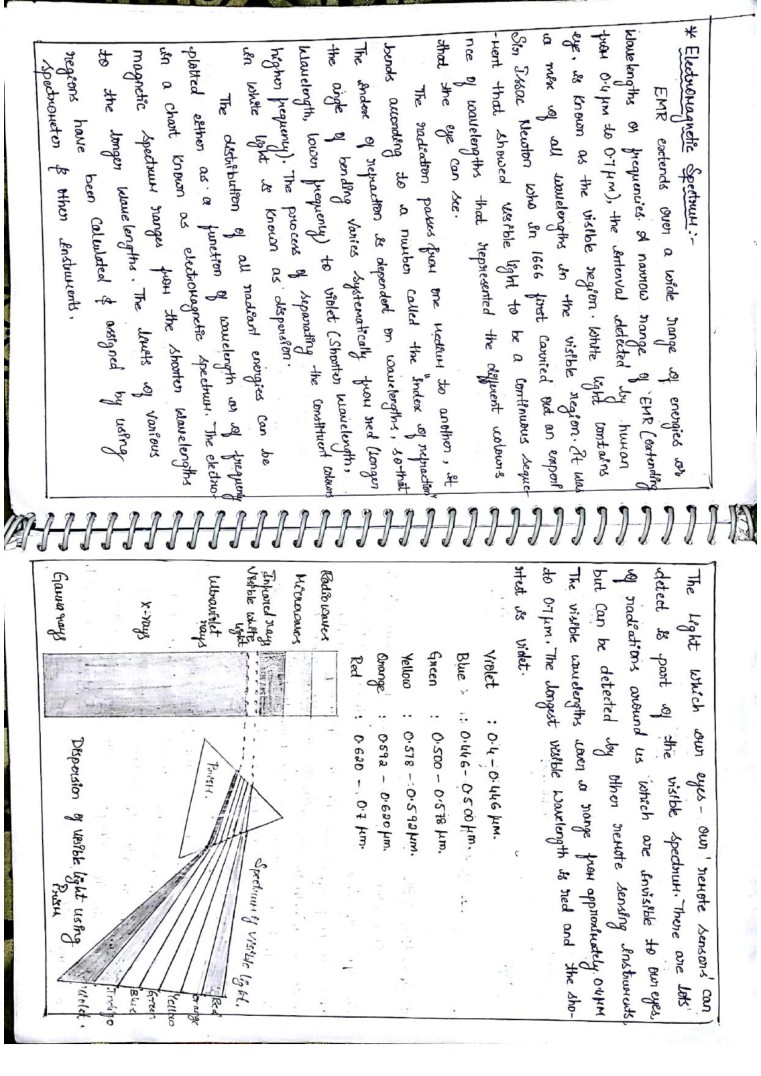 * Electromagnetic Spectrum :-
EMR extends over a wide range of energies or
wavelengths or frequencies. A narrow range of EMR (extending
from 0.4 µm to 0.7 µm), the interval detected by human
eye, is known as the visible region. White light contains
a mix of all wavelengths in the visible region. It was
Sir Issac Newton who in 1666 first carried out an experi
-ment that showed visible light to be a continuous seque-
nce of wavelengths that represented the different colours
that the eye can see.
The radiation passes from one medium to another, it
bends according to a number called the "index of refraction"
The index of refraction is dependent on wavelengths, so that
the angle of bending varies systematically from red (longer
wavelength, lower frequency) to violet (shorter wavelength,
higher frequency). The process of separating the constituent colours
in white light is known as dispersion.
The distribution of all radiant energies can be
plotted either as a function of wavelength or of frequency
in a chart known as electromagnetic spectrum. The electro-
magnetic spectrum ranges from the shorter wavelengths
to the longer wavelengths. The limits of various
regions have been calculated & assigned by using
spectrometer & other instruments.
The light which our eyes - our 'remote sensors' can
detect is part of the visible spectrum. There are lots
of radiations around us which are invisible to our eyes,
but can be detected by other remote sensing instruments.
The visible wavelengths cover a range from approximately 0.4 µm
to 0.7 µm. The longest visible wavelength is red and the sho-
rtest is violet.
Violet : 0.4 - 0.446 µm.
Blue : 0.446 - 0.500 µm.
Green : 0.500 - 0.578 µm.
Yellow : 0.578 - 0.592 µm.
Orange : 0.592 - 0.620 µm.
Red : 0.620 - 0.7 µm.
Radio waves
Microwaves
Infrared rays
Visible white
light
Ultraviolet
rays
X-rays
Gamma rays
Prism.
Spectrum of visible light.
Red
Orange
Yellow
Green
Blue
Indigo
Violet.
Dispersion of visible light using
Prism